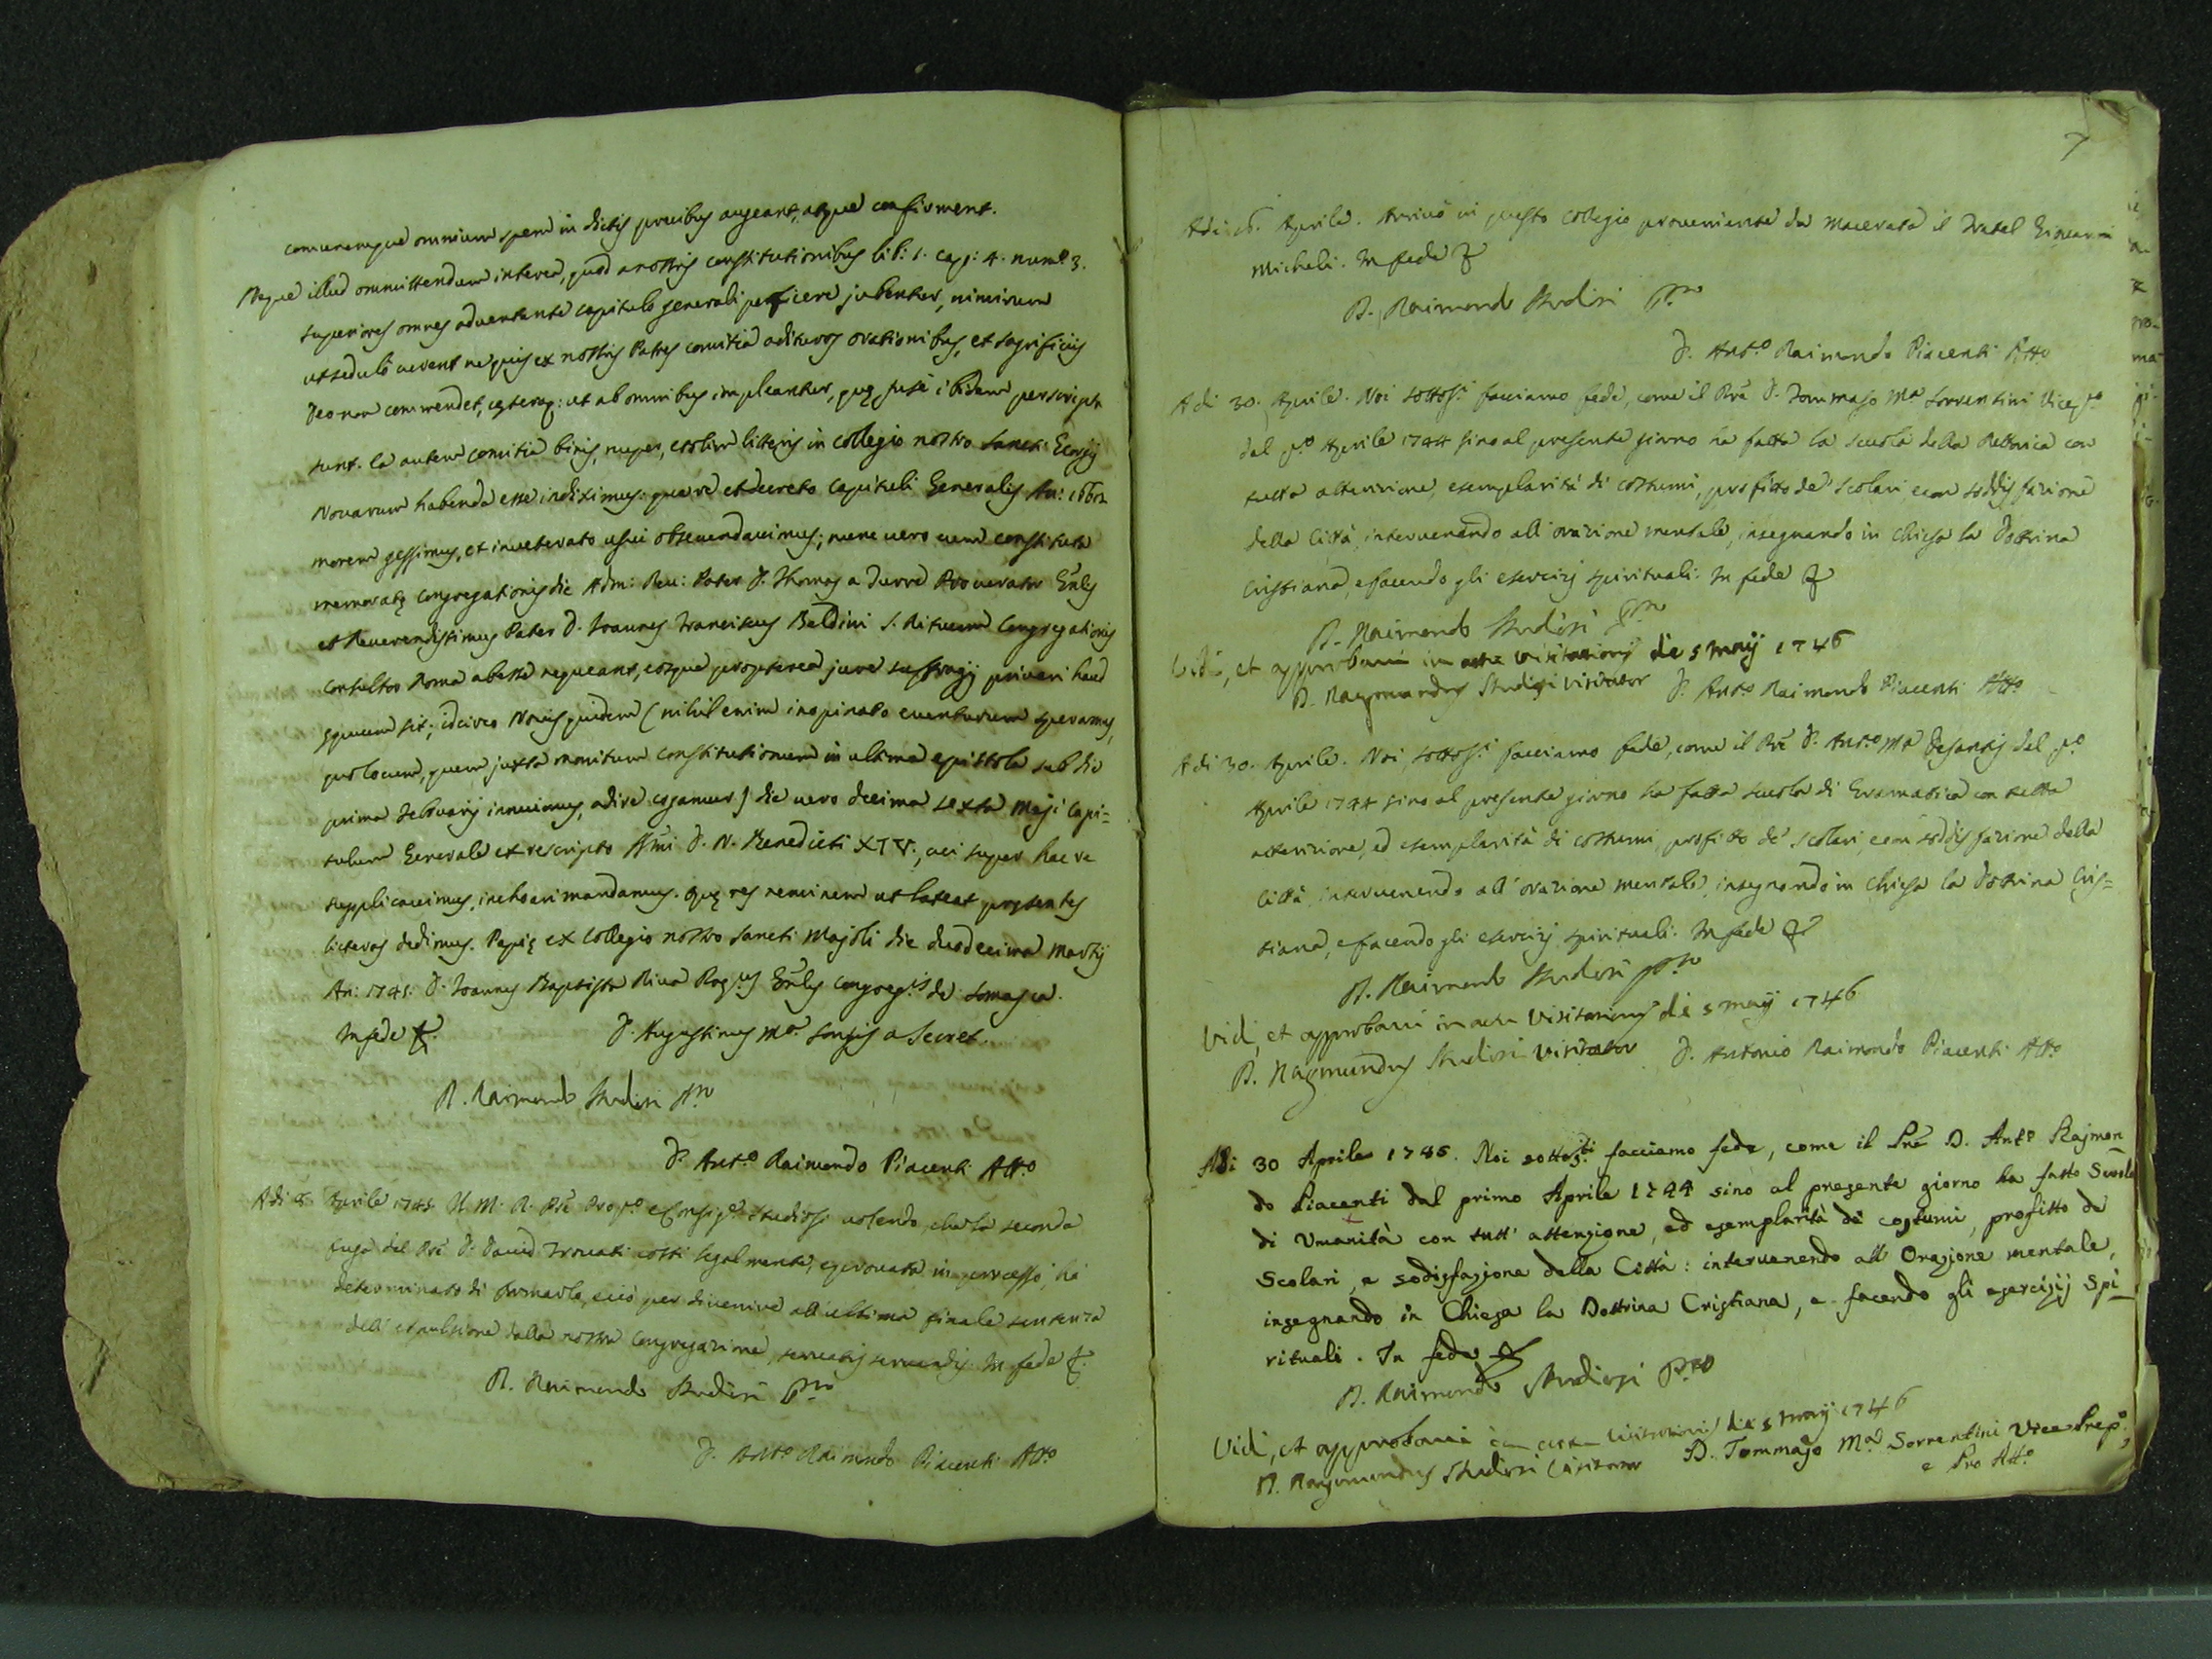 comunemque omnium spem in dictis precibus augeant, atque confirment.
Neque illud ommittendum interea, quod a nostris constitutionibus lib: 1. cap: 4. num.º 3.
superiores omnes adventante capitulo generali perficere jubentur, nimirum
ut sedulo curent ne quis ex nostris Patres comitia adituros orationibus, et sagrificiis
Deo non commendet, ceteraq: ut ab omnibus impleantur, quę fuse ibidem perscripta
sunt. Ea autem comitia binis, nuper, et olim litteris in collegio nostro Sancti Georgij
Novarum habenda esse indiximus: quare et decreto Capituli Generalis An:
morem gessimus, et inveterato usui obsecundavimus; nunc vero cum constituta
memoratę Congregationis die Adm: Rev: Pater D. Thomas a Procurator Gnlis
et Reverendissimus Pater D. Joannes Franciscus Baldini S. Rituum Congregationis
Consultor Roma abesse nequeant, eosque propterea jure suffragij privari haud
ęquum sit; idcirco Novis quidem (nihil enim inopinato eventurum speramus,
quo locum, quem juxta monitum constitutionum in ultima epistola sub die
prima Februarij innuimus, adire cogamur) die vero decima sexta Maji Capi=
tulum Generale et rescripto Ssmi D. N. Benedicti XIV., cui super hac re
supplicavimus, inchoari mandamus. Quę res neminem ut lateat pręsentes
litteras dedimus. Papię ex Collegio nostro Sancti Majoli die duodecima Martij
An: 1745. D. Joannes Baptista Riva Gnlis Congreg.is de Somasca.
In fede
D. Augustinus M.a a Secret.
D. Raimondo Studiosi
D. Ant.º Raimondo Piacenti Att.º
Adi 8 Aprile 1745. Il M. R. Pre Studiosi volendo, che la seconda
fuga del Pre D. David costi legalmente, e provata in processo, ha
determinato di formarlo, e ciò per divenire all'ultima finale sentenza
dell'espulsione dalla nostra Congregazione, servatis servandis. In fede
D. Raimondo Studiosi
D. Ant.º Raimondo Piacenti Att.º
7
Adi Aprile. Arrivò in questo Collegio proveniente da Macerata il Fratel Giovanni
Micheli. In fede
D. Raimondo Studiosi
D. Ant.º Raimondo Piacenti Att.º
Adi 30. Aprile. Noi sottos.i facciamo fede, come il Pre D. Tommaso M.a Sorrentini Vicep.º
dal p.º Aprile 1744 sino al presente giorno ha fatto la scuola della Rettorica con
tutta attenzione, esemplarità di costumi, profitto de' Scolari e con soddisfazione
della Città, intervenendo all'orazione mentale, insegnando in Chiesa la Dottrina
Cristiana, e facendo gli esercizij spirituali. In fede
D. Raimondo Studiosi
Vidi, et approbavi in actu visitationis die 5 maij 1746
D. Raymundus Studiosi Visitator D. Ant.º Raimondo Piacenti Att.º
Adi 30. Aprile. Noi sottos.i facciamo fede, come il Pre D. Ant.º M.a Desantis dal p.º
Aprile 1744 sino al presente giorno ha fatta scuola di Gramatica con tutta
attenzione, ed esemplarità di costumi, profitto de' Scolari, e con soddisfazione della
Città, intervenendo all'orazione mentale, insegnando in Chiesa la Dottrina Cris=
tiana, e facendo gli esercizij spirituali. In fede
D. Raimondo Studiosi
Vidi, et approbavi in actu Visitationis die 5 maij 1746
D. Raymundus Studiosi Visitator D. Antonio Raimondo Piacenti Att.º
Adi 30 Aprile 1745. Noi sottos.ti facciamo fede, come il Pre D. Ant.º Rajmon
do Piacenti dal primo Aprile 1744 sino al presente giorno ha fatto Scuola
di Umanità con tutt' attenzione, ed esemplarità de costumi, profitto de
Scolari, e sodisfazione della Città: intervenendo all'Orazione mentale,
insegnando in Chiesa la Dottrina Cristiana, e facendo gli esercizij spi
rituali. In fede
D. Raimondo Studiosi
Vidi, et approbavi in actu Visitationis die 5 maij 1746
D. Raymundus Studiosi Visitator D. Tommaso M.a Sorrentini Vice Prep.º
e Pro Att.º